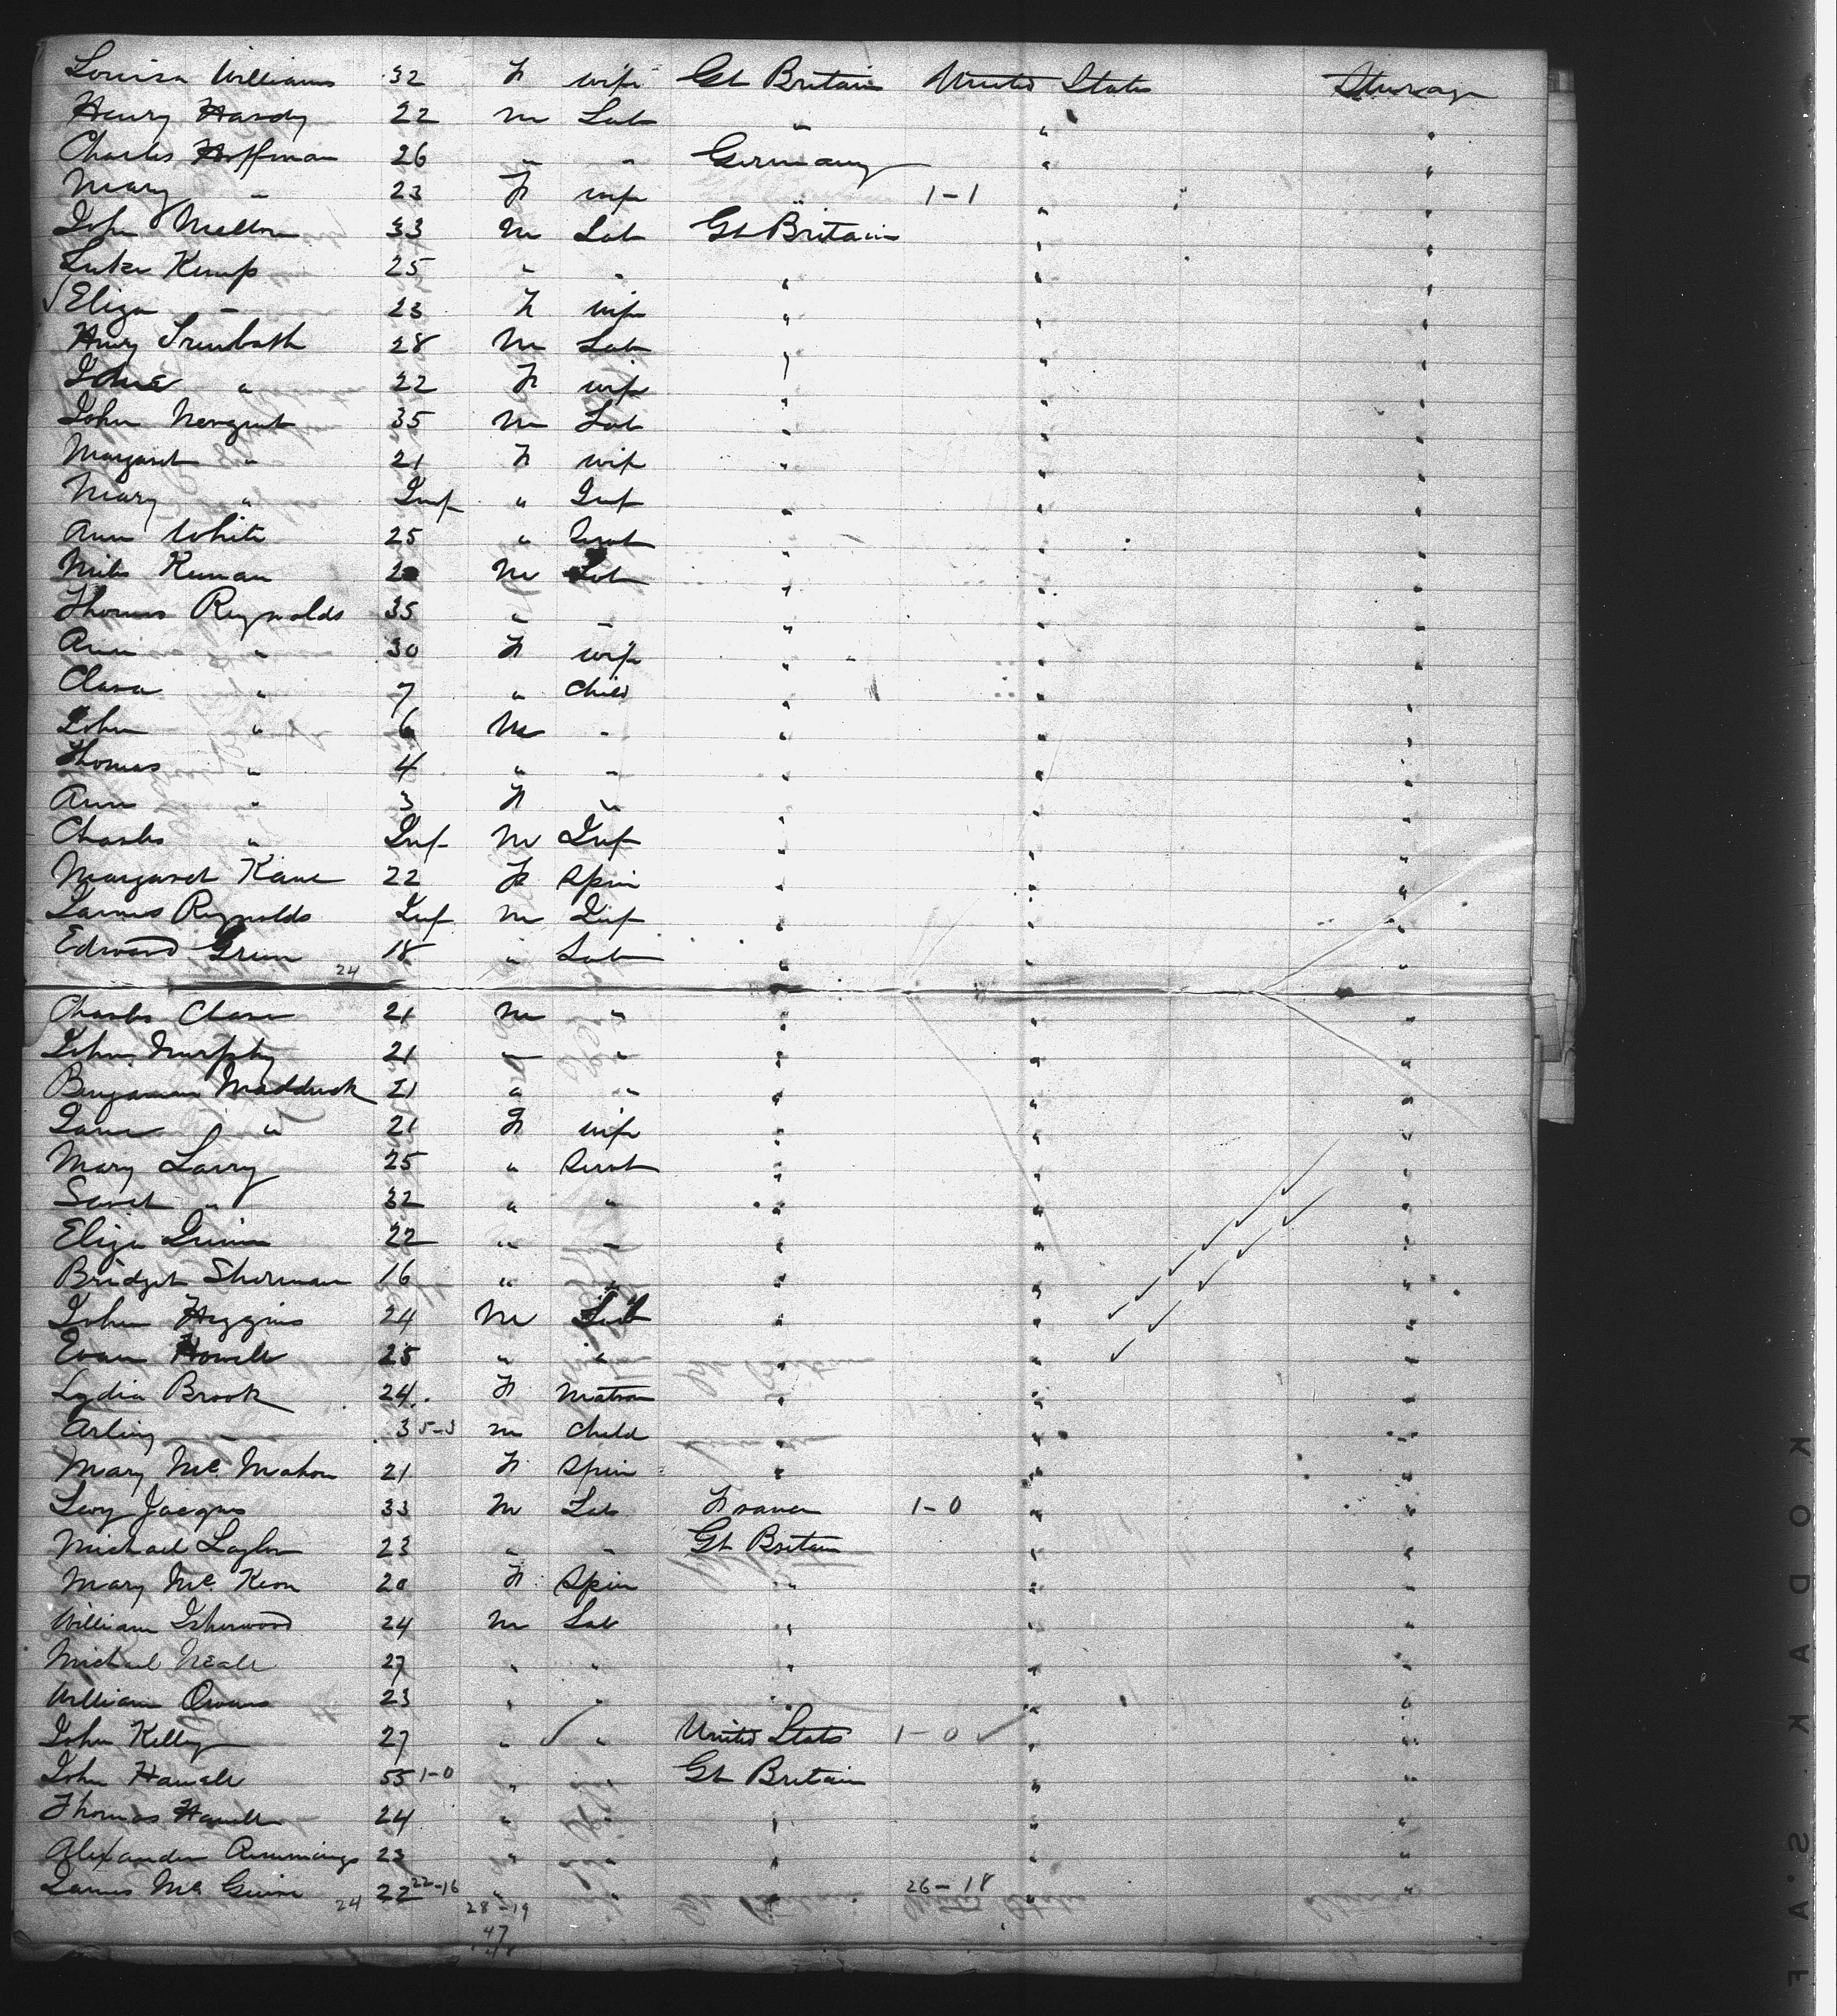 Louisa Williams 32 F wife Gt Britain United States Steerage
Henry Hardy 22 m Lab " " "
Charles Hoffman 26 " " Germany " "
Mary " 23 F wife " 1-1 " "
John Mellon 33 m Lab Gt Britain " "
Luke Kemp 25 " " " " "
√ Eliza - 23 F wife " " "
Henry Trenbath 28 m Lab " "
" 22 F wife " " "
John 35 m Lab " " "
Margaret " 21 F wife " " "
Mary " Inf " Inf " " "
Ann White 25 " Servt " " "
Kernan m Lab " " "
Thomas Reynolds 35 " - " " "
Ann " 30 F wife " " "
Clara " 7 " Child " " "
John " 6 m - " " "
Thomas " 4 " " " " "
Ann " 3 F " " " "
Charles " Inf m Inf " " "
Margaret Kane 22 F Spin " " "
James Reynolds Inf m Inf " " "
Edward Green 18 " Lab " " "
24
Charles Chase 21 m " " " "
John Murphy 21 " " " " "
Benjamin Madduck 21 " " " " "
Jane " 21 F wife " " "
Mary Larry 25 " Servt " " "
" 32 " " " " "
Eliza 22 " - " " "
Bridget Sherman 16 " " " " "
John Higgins 24 m Lab " " "
Evan Howells 25 " " " " "
Lydia Brook 24 F Matron " " "
Arling - 3 5-3 m Child " " "
Mary Mc Mahon 21 F Spin " " "
Levy Jacques 33 m Lab France 1-0 " "
Michael 23 " " Gt Britain " "
Mary Mc Keon 20 F Spin " " "
William Isherwood 24 m Lab " " "
Michael Neale 27 " " " " "
William Owens 23 " " " " "
John Kelley 27 " √ " United States 1-0 √ " "
John 55 1-0 " " Gt Britain " "
Thomas 24 " " " " "
Alexander Cummings 23 " " " " "
James Mc Guire 24 22 22-16 " " " 26-18 " "
28-19
47